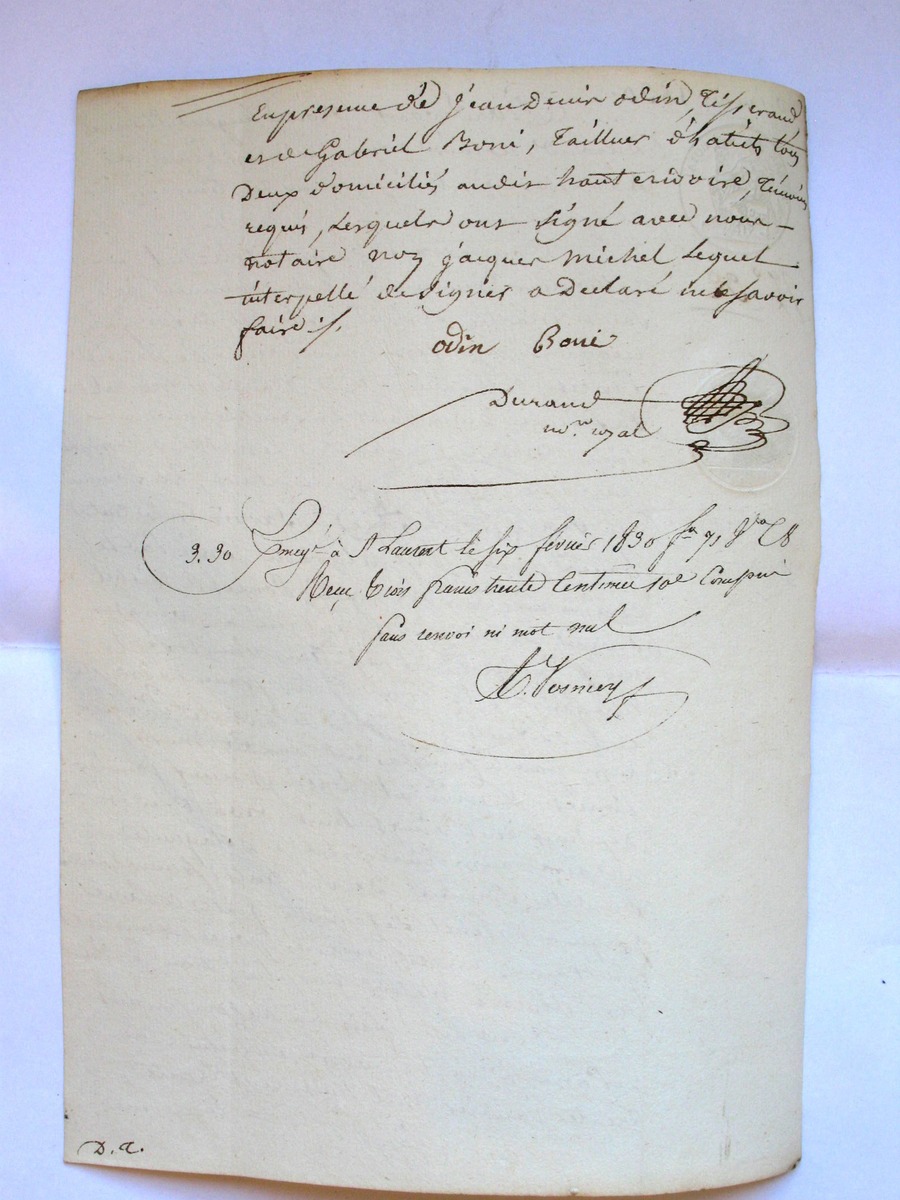 En presence de jean Denis odin, Tisserand
et de Gabriel Boni, Tailleur d'habits tous
Deux domiciliés audit haut erivoire, Témoins
requis, Lesquels ont signé avec nous
notaire non jacques michel Lequel
interpellé de signer a Declaré ne le savoir
faire ./.
odin Boni
Durand
no.re royal
3.30 Enregé à St Laurent le six février 1830 fo 71 Vo C 8
Reçu trois francs trente Centimes 10e Compris
sans renvoi ni mot nul
D. a.